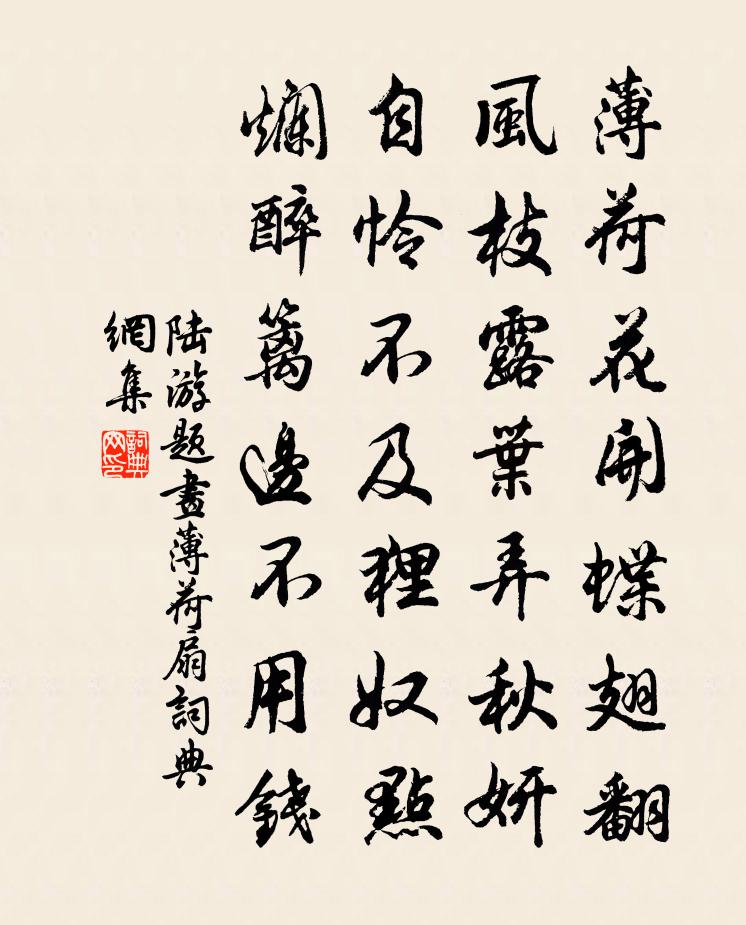 薄荷花開蝶翅翻
風枝露葉弄秋妍
自怜不及狸奴黠
爛醉籬邊不用錢
陆游題畫薄荷扇詞典
網集
詞典網印